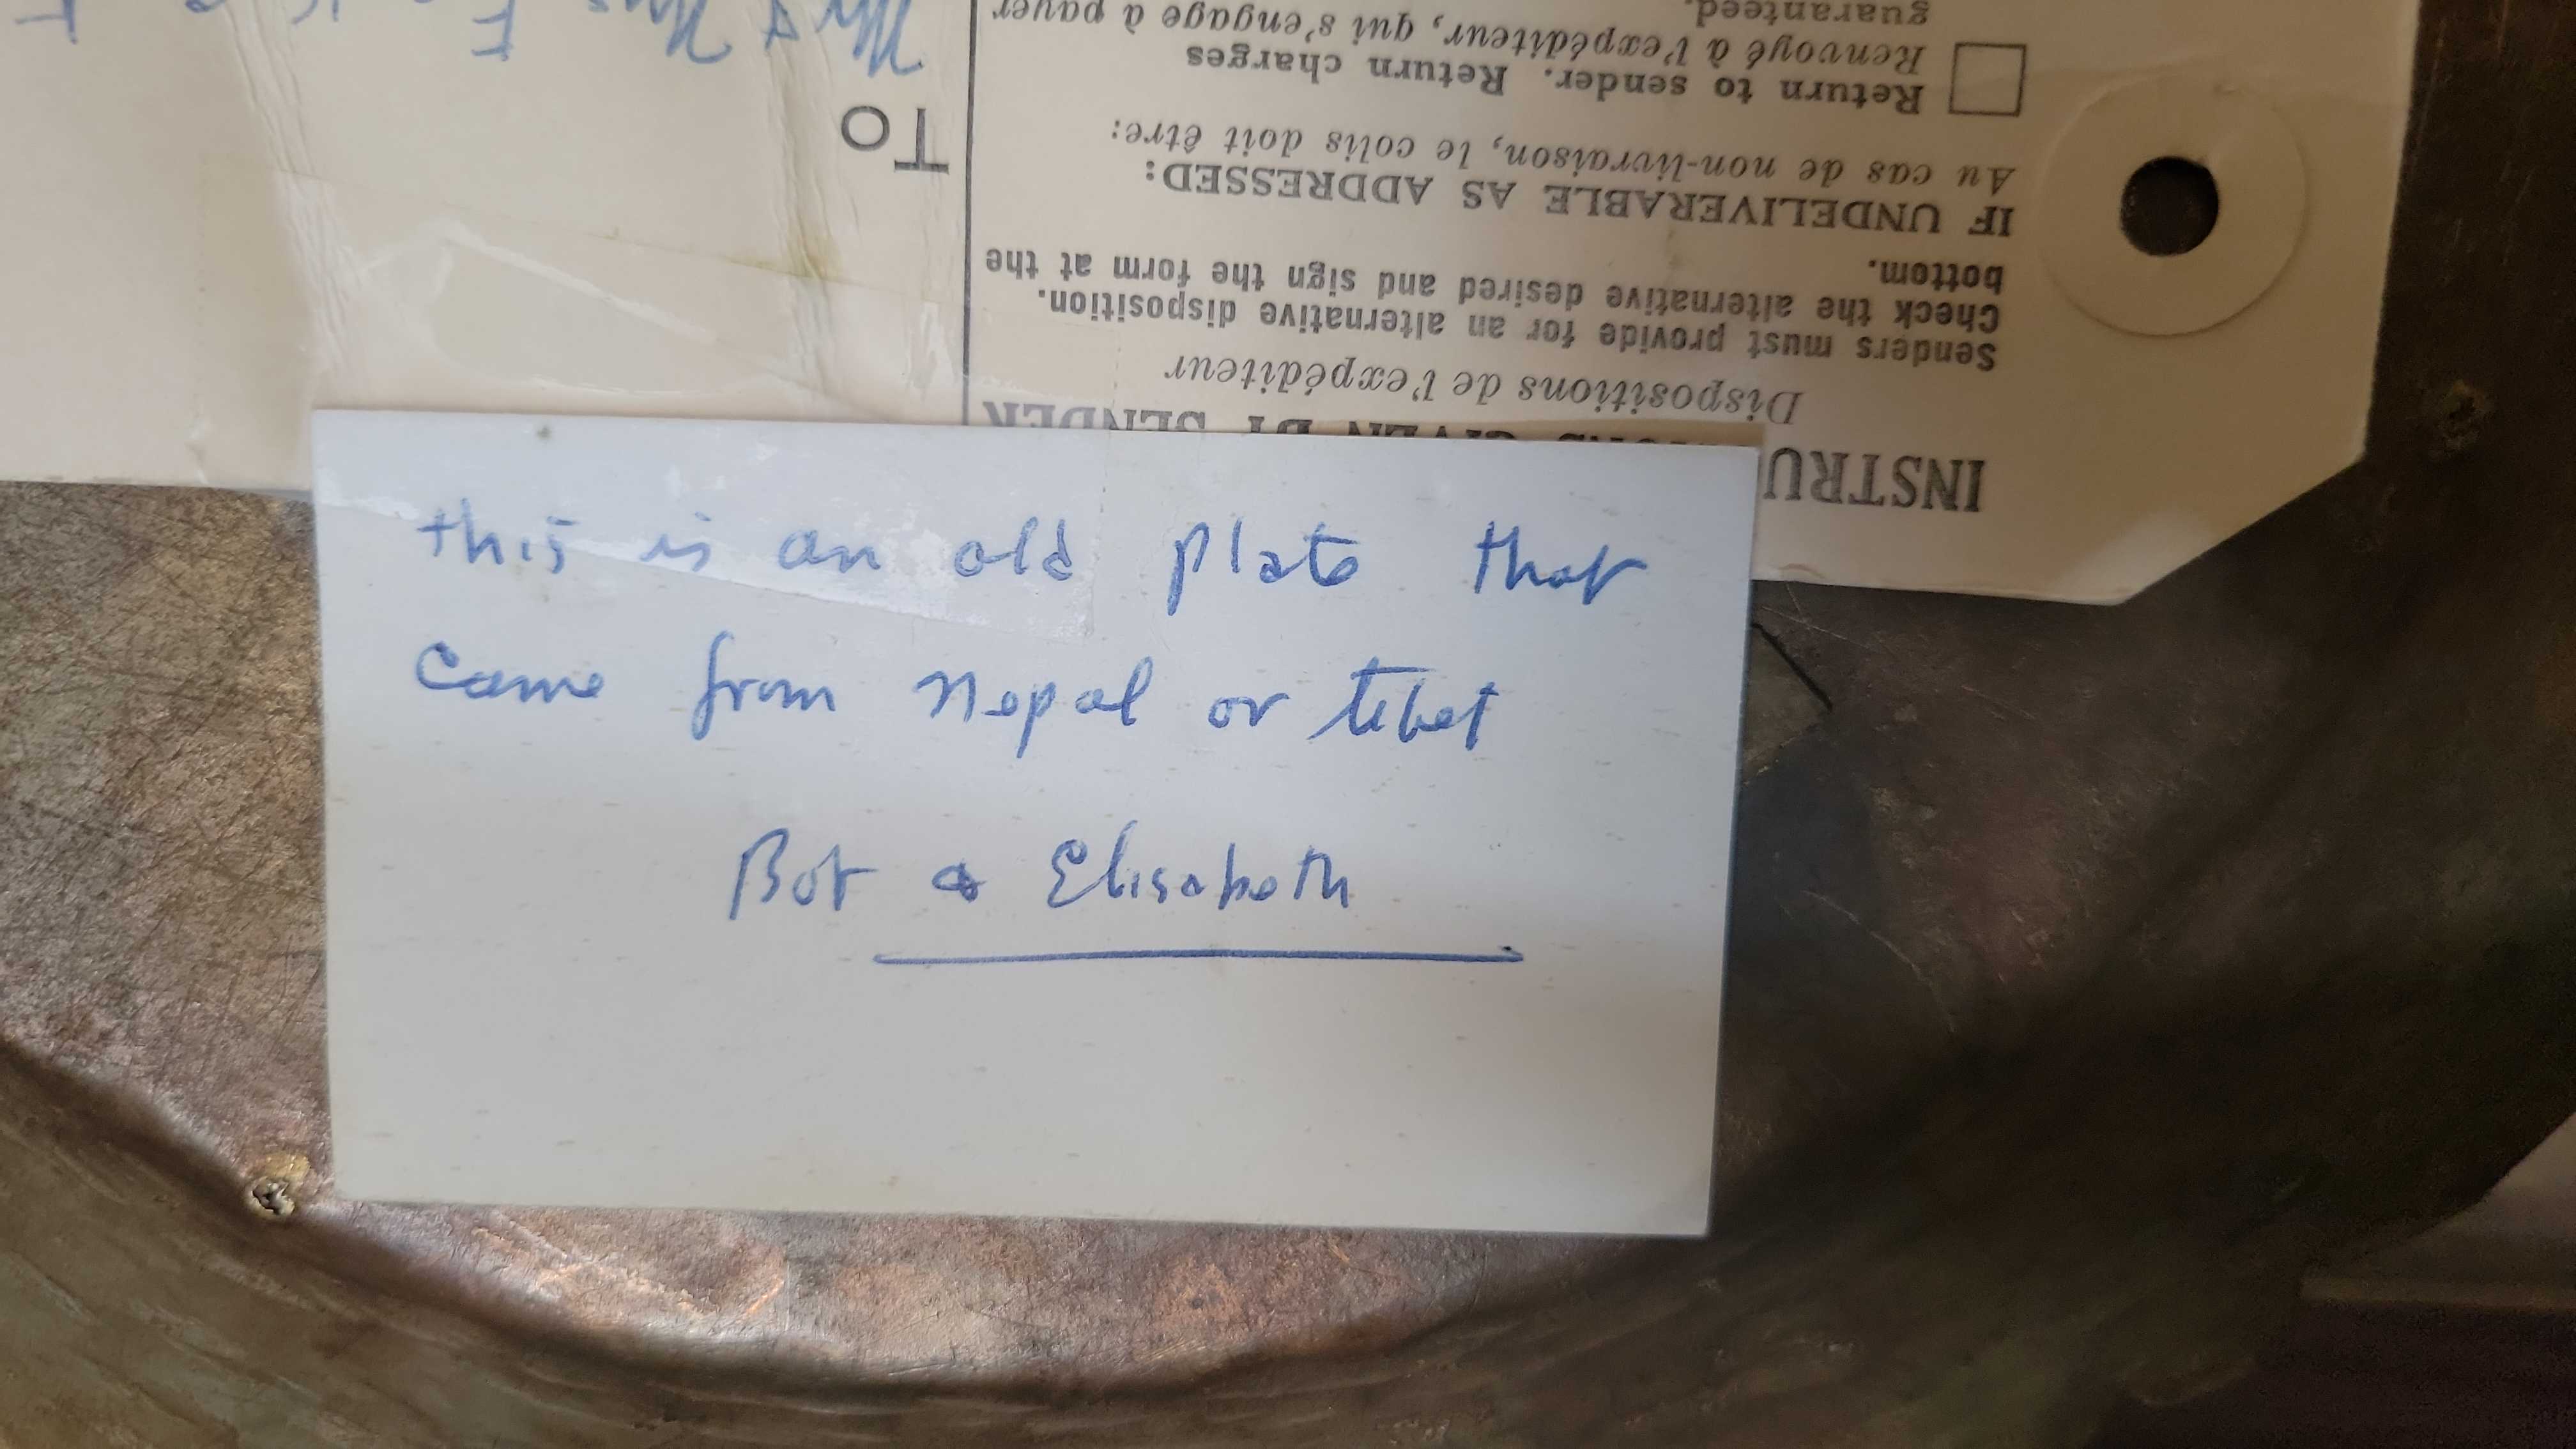 this is an old plate that
came from Nepal or tibet
Bob & Elisabeth
INSTRU
GIVEN BY SENDER
Dispositions de l'expéditeur
Senders must provide for an alternative disposition.
Check the alternative desired and sign the form at the
bottom.
IF UNDELIVERABLE AS ADDRESSED:
Au cas de non-livraison, le colis doit être:
Return to sender. Return charges
Renvoyé à l'expéditeur, qui s'engage à payer
guaranteed.
TO
Mr & Mrs E